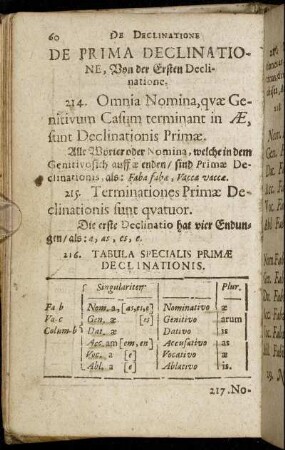 60 DE DECLINATIONE
DE PRIMA DECLINATIO-
NE, Von der Ersten Decli-
natione.
214. Omnia Nomina, qvæ Ge-
nitivum Casum terminant in Æ,
sunt Declinationis Primæ.
Alle Wörter oder Nomina, welche in dem
Genitivo sich auff æ enden / sind Primæ De-
clinationis, als: Faba fabæ, Vacca vaccæ.
215. Terminationes Primæ De-
clinationis sunt qvatuor.
Die erste Declinatio hat vier Endun-
gen / als: a, as, es, e.
216. TABULA SPECIALIS PRIMÆ
DECLINATIONIS.
Singulariter Plur.
Fa-b Nom. a, [as, es, e] Nominativo æ
Va-c Gen. æ [es] Genitivo arum
Colum-b Dat. æ Dativo is
Acc. am [em, en] Accusativo as
Voc. a [e] Vocativo æ
Abl. a [e] Ablativo is.
217. No-